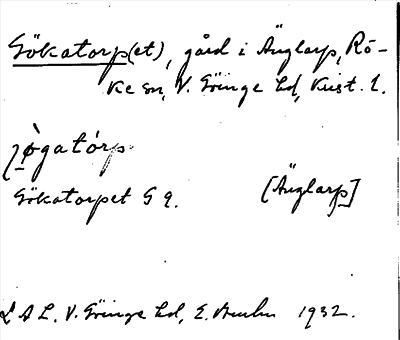 Gökatorp(et), gård i Änglarp, Rö-
ke sn, V. Göinge hd, Krist. l.
jø̀gatórp
Gökatorpet G 9. [Änglarp]
L A L. V. Göinge hd, E. 1932.